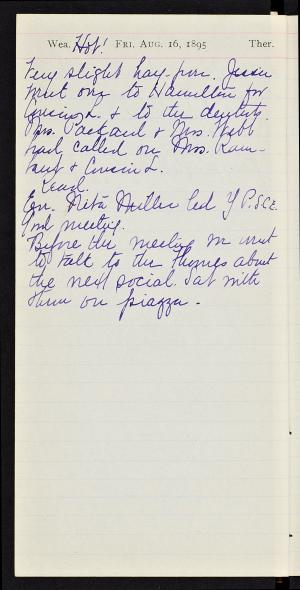 Wea. Hot! FRI. AUG. 16, 1895 Ther.
Very slight hay-fever. Jessie
went over to Hamilton for
Cousin L. & to the dentist.
Mrs. Packard & Mrs. Webb
had called on Mrs.
& Cousin L.
Read.
Eve. Nita Miller led Y.P.S.C.E.
Good meeting.
Before the meeting we went
to talk to the about
the new social. Sat with
them on piazza.